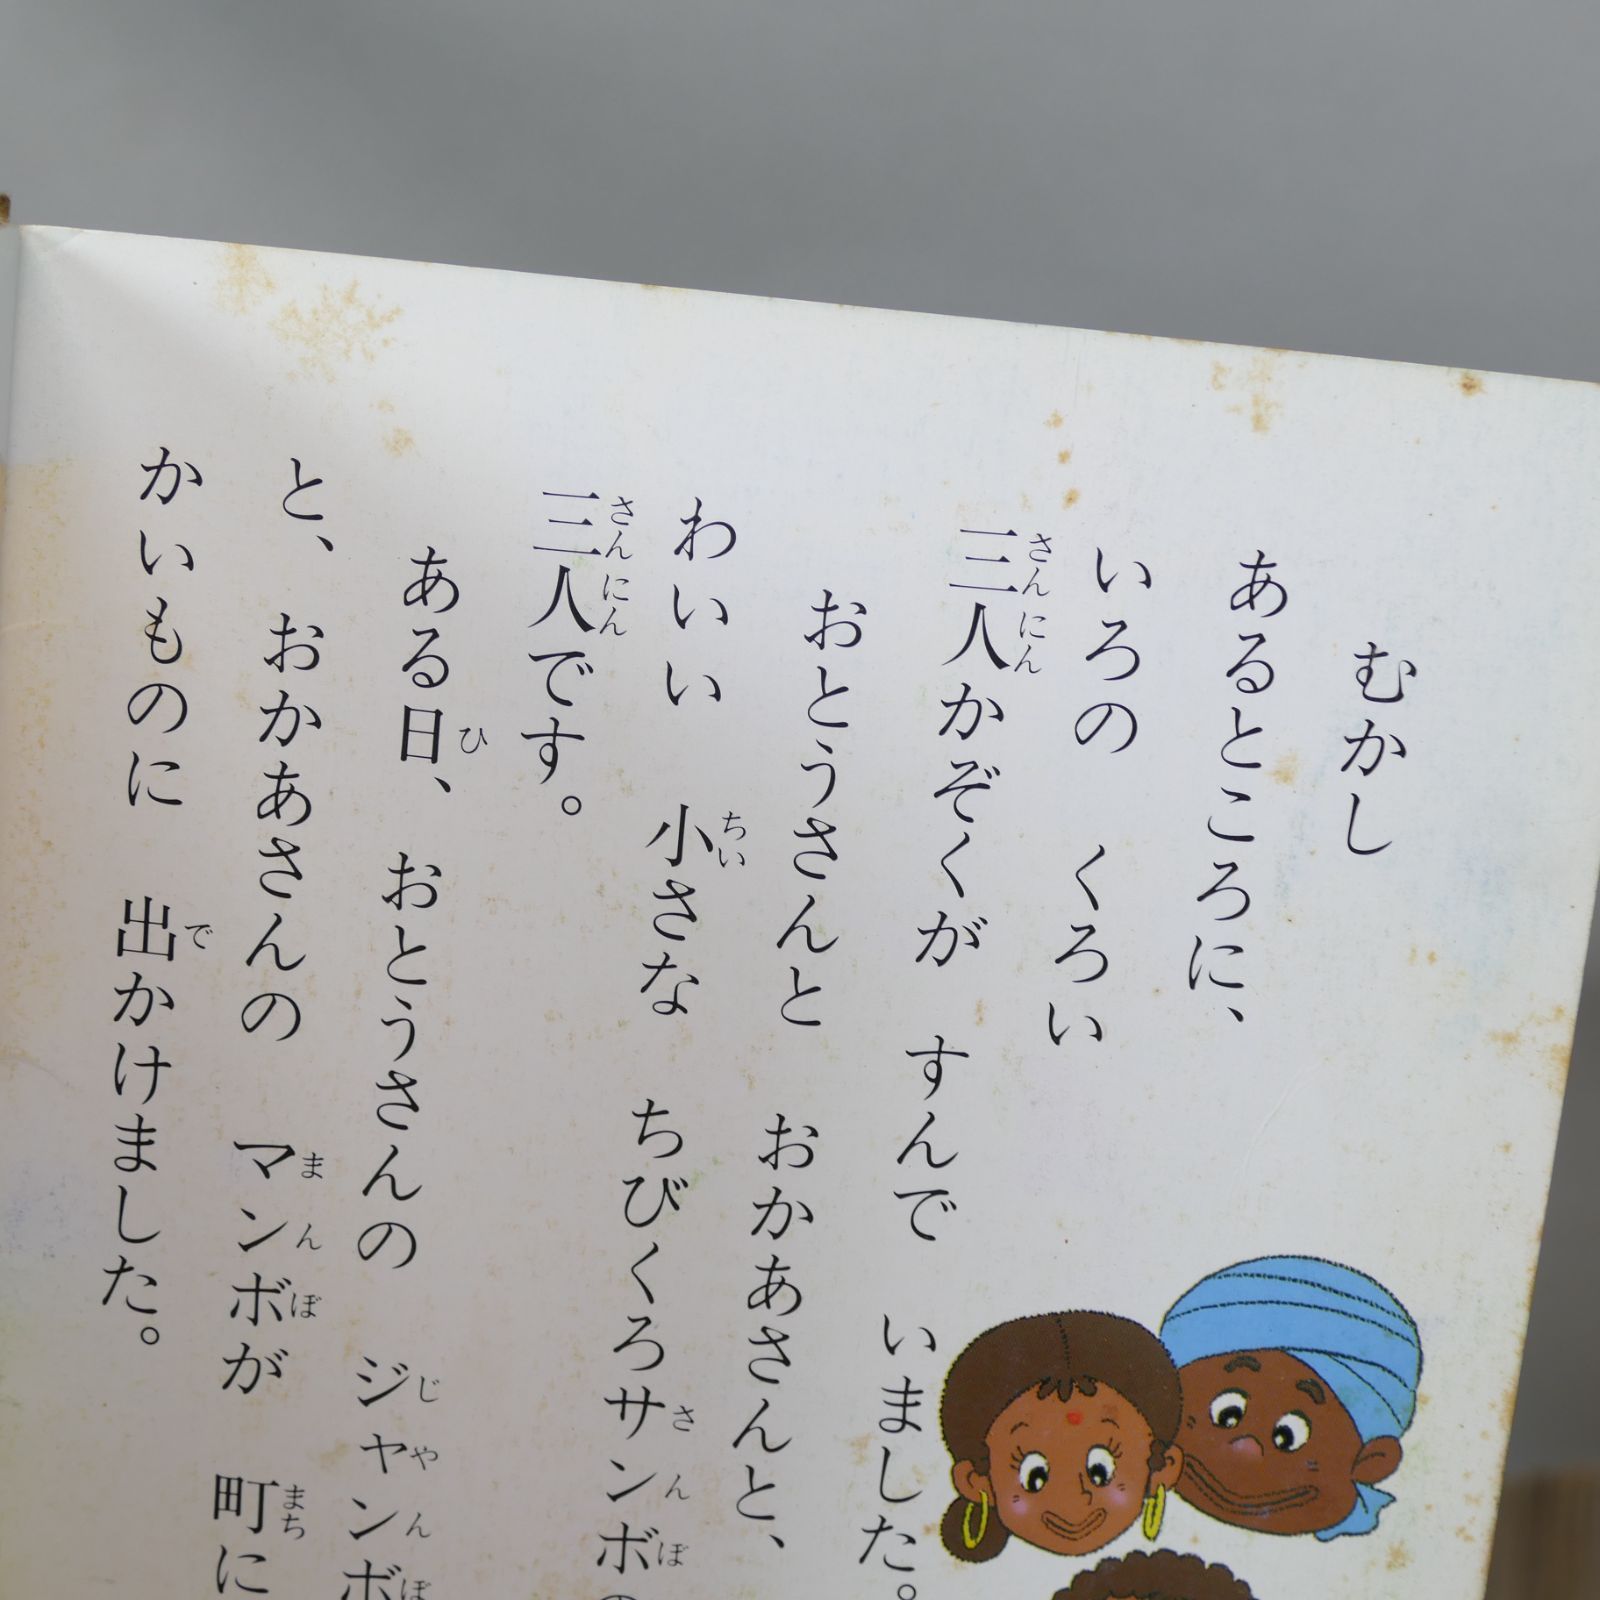 むかし
あるところに、
いろの　くろい
三人かぞくが　すんで　いました。
おとうさんと　おかあさんと、
わいい　小さな　ちびくろサンボの
三人です。
ある日、おとうさんの　ジャンボ
と、おかあさんの　マンボが　町に
かいものに　出かけました。